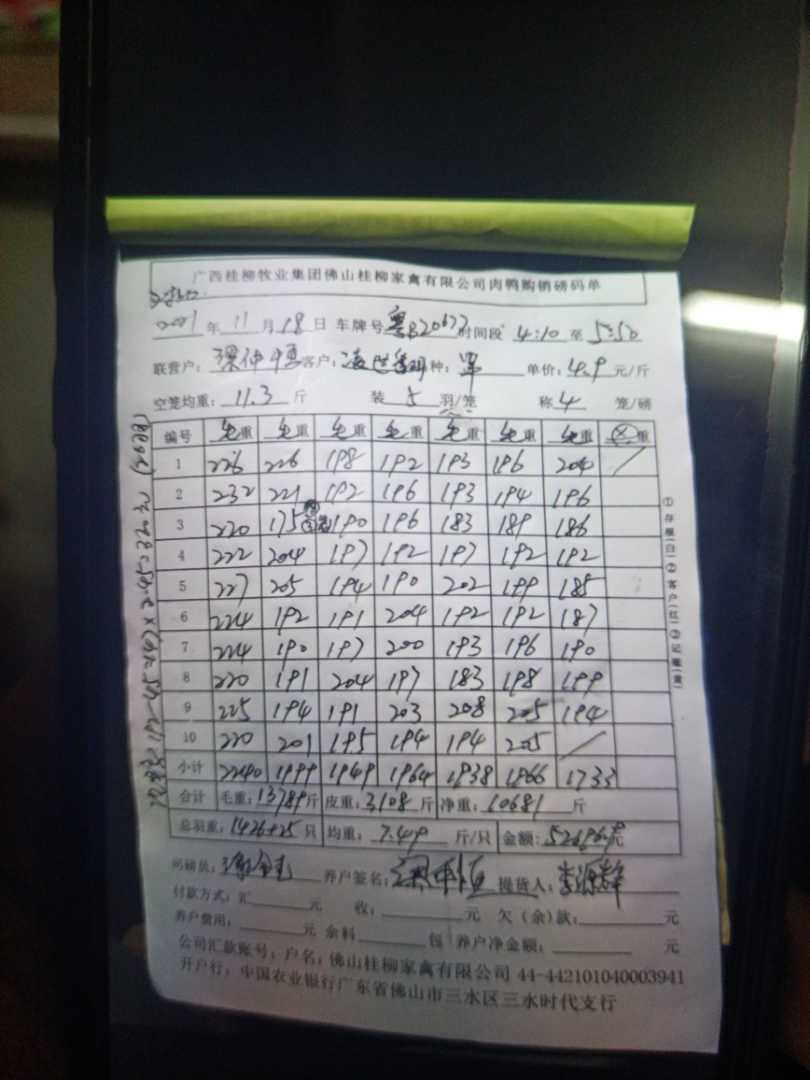 广西桂柳牧业集团佛山桂柳家禽有限公司肉鸭购销磅码单
2021 年 11 月 18 日 车牌号 粤B20677 时间段 4:10 至 5:50
联营户: 客户: 种: 单价: 4.9 元/斤
空笼均重: 11.3 斤 装 5 羽/笼 称 4 笼/磅
编号 毛重 毛重 毛重 毛重 毛重 毛重 毛重 重
1 226 226 198 192 193 196 204 /
2 232 221 192 196 193 194 196
3 220 175 190 196 183 189 186
4 222 204 197 192 197 192 192
5 227 205 194 190 202 199 185
6 224 192 191 204 192 192 187
7 224 190 197 200 193 196 190
8 220 191 204 197 183 198 199
9 225 194 191 203 208 205 194
10 220 201 195 194 194 205 /
小计 2240 1999 1949 1964 1938 1966 1733
合计 毛重: 13789 斤 皮重: 3108 斤 净重: 10681 斤
总羽重: 1426+25 只 均重: 7.49 斤/只 金额: 元
司磅员: 养户签名: 提货人:
付款方式: 汇 元 收: 元 欠(余)款: 元
养户费用: 元 余料 包 养户净金额: 元
公司汇款账号: 户名: 佛山桂柳家禽有限公司 44-442101040003941
开户行: 中国农业银行广东省佛山市三水区三水时代支行
①存根(白)②客户(红)③记账(黄)